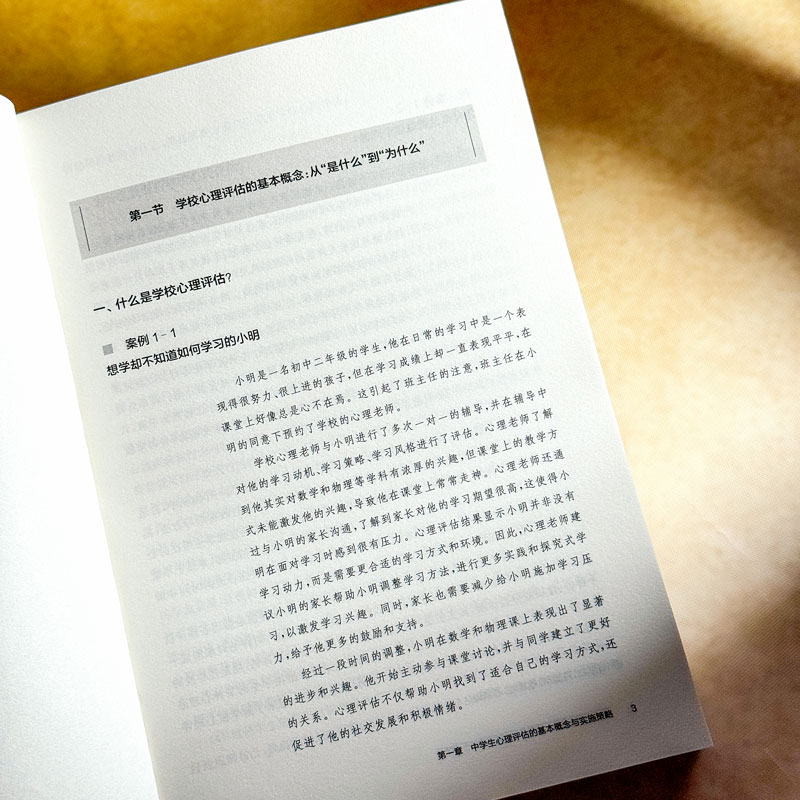 第一节　学校心理评估的基本概念：从“是什么”到“为什么”
一、什么是学校心理评估？
案例 1-1
想学却不知道如何学习的小明
小明是一名初中二年级的学生，他在日常的学习中是一个表
现得很努力、很上进的孩子，但在学习成绩上却一直表现平平，在
课堂上好像总是心不在焉。这引起了班主任的注意，班主任在小
明的同意下预约了学校的心理老师。
学校心理老师与小明进行了多次一对一的辅导，并在辅导中
对他的学习动机、学习策略、学习风格进行了评估。心理老师了解
到他其实对数学和物理等学科有浓厚的兴趣，但课堂上的教学方
式未能激发他的兴趣，导致他在课堂上常常走神。心理老师还通
过与小明的家长沟通，了解到家长对他的学习期望很高，这使得小
明在面对学习时感到很有压力。心理评估结果显示小明并非没有
学习动力，而是需要更合适的学习方式和环境。因此，心理老师建
议小明的家长帮助小明调整学习方法，进行更多实践和探究式学
习，以激发学习兴趣。同时，家长也需要减少给小明施加学习压
力，给予他更多的鼓励和支持。
经过一段时间的调整，小明在数学和物理课上表现出了显著
的进步和兴趣。他开始主动参与课堂讨论，并与同学建立了更好
的关系。心理评估不仅帮助小明找到了适合自己的学习方式，还
促进了他的社交发展和积极情绪。
第一章　中学生心理评估的基本概念与实施策略　3